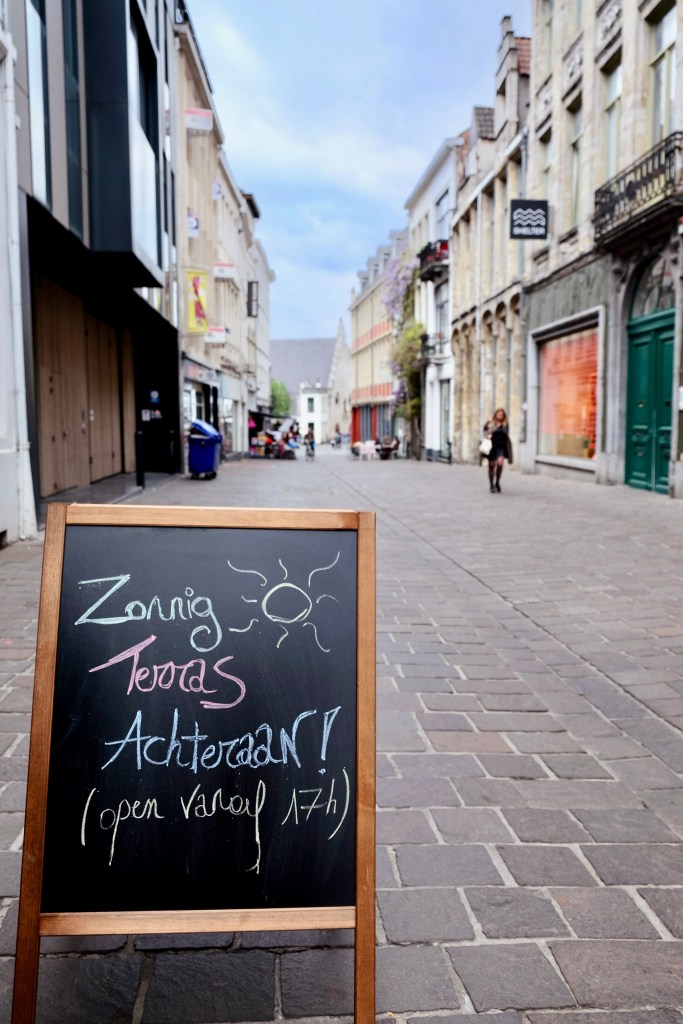 SHELTER
Zonnig
Terras
Achteraan!
(open vanaf 17h)